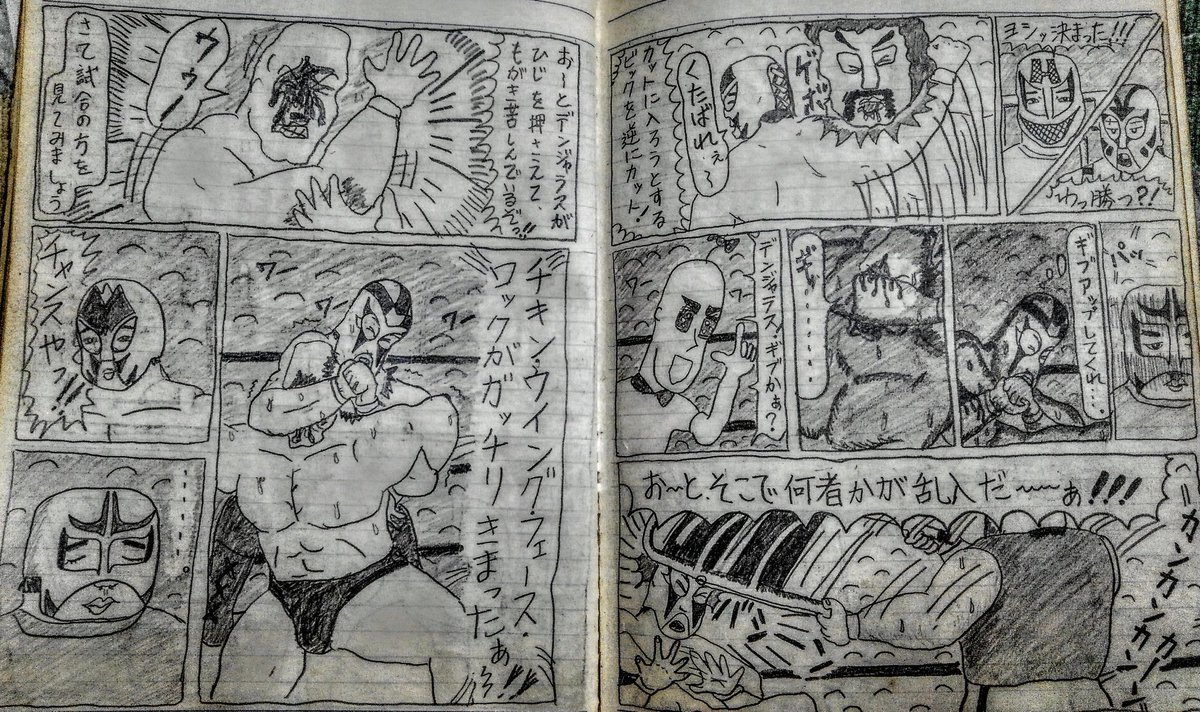 ヨシッ決まった!!!
わっ勝つ?!
ゲボッ
くたばれぇ〜
カットに入ろうとする
ビックを逆にカット!
パッ
ギブアップしてくれ....
デンジャラス、ギブかぁ?
ワー
ワー
お〜と、そこで何者かが乱入だ〜〜ぁ!!!
カンカンカーン
お〜とデンジャラスが
ひじを押さえて、
もがき苦しんでいるぞっ!!
ウゥー
さて試合の方を
見てみましょう
チキン・ウイング・フェース・
ロックがガッチリきまったぁ!!
ワー
ワー
ワー
チャンスやっ!!!
......